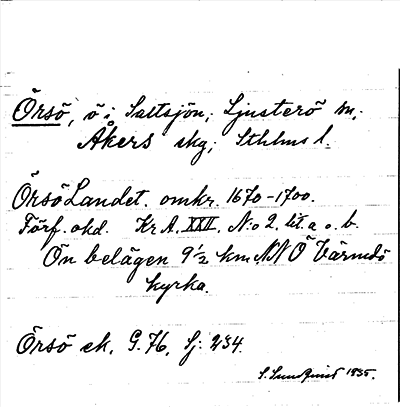 Örsö, ö i Saltsjön, Ljusterö sn,
Åkers skg, Sthlms l.
Örsö Landet. omkr. 1670-1700.
Förf. okd. Kr A. XXII. N:o 2. lit. a o. b.
Ön belägen 9 1/2 km. NNÖ Värmdö
kyrka.
Örsö ek. G. 76. Sj: 234.
S. Sundquist 1935.